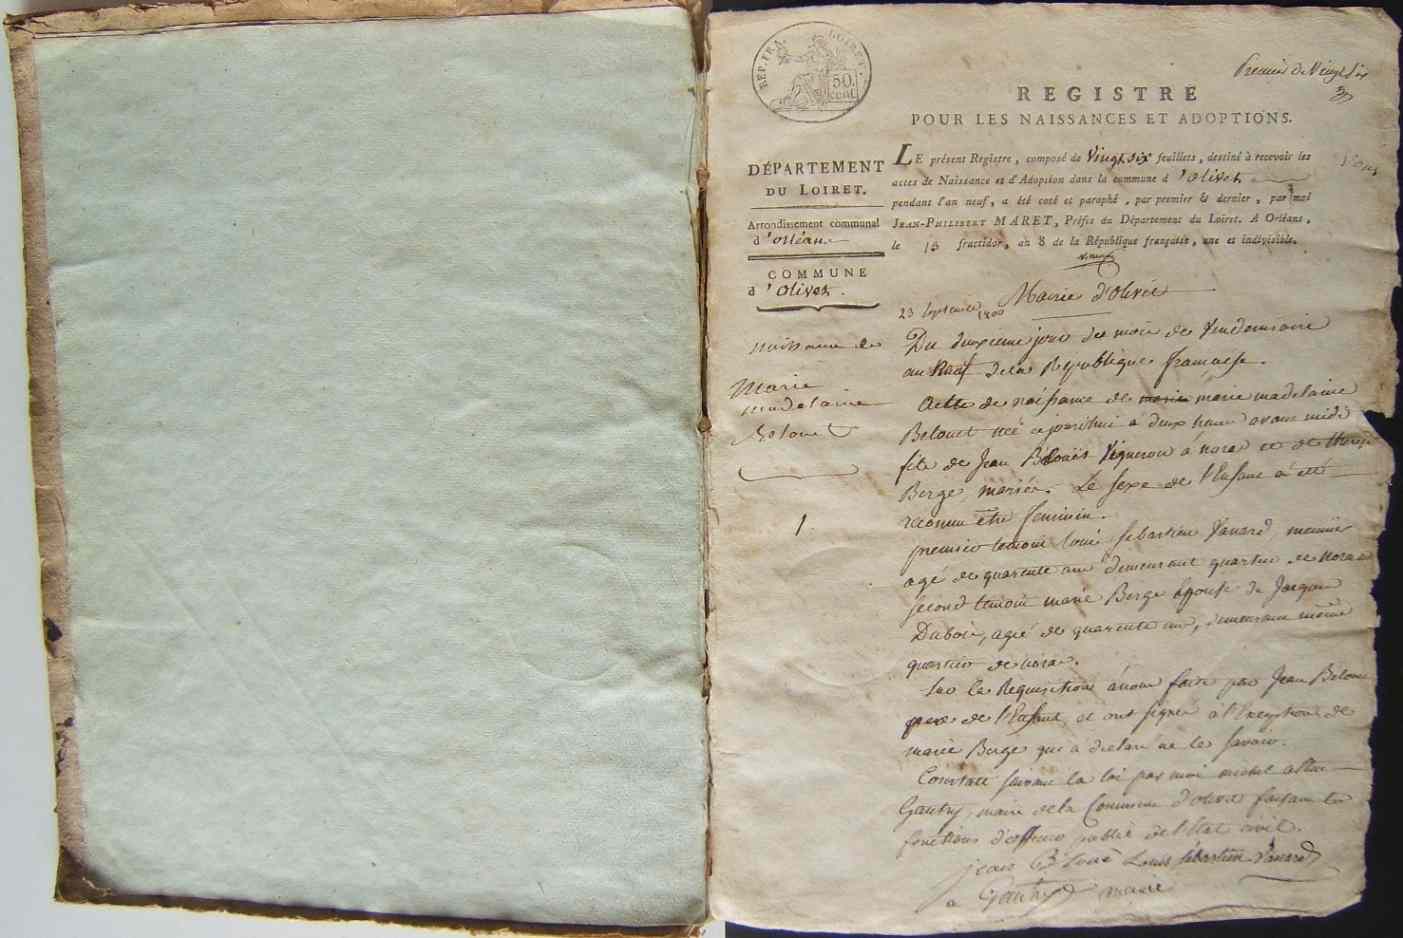 REP. FRA. LOIRET.
50. cent.
Premier de Vingt Six
REGISTRE
POUR LES NAISSANCES ET ADOPTIONS.
DÉPARTEMENT
DU LOIRET.
Arrondissement communal
d'orléans
COMMUNE
d'Olivet.
LE présent Registre, composé de Vingt six feuillets, destiné à recevoir les
actes de Naissance et d'Adoption dans la commune d'Olivet
pendant l'an neuf, a été coté et paraphé, par premier & dernier, par moi
JEAN-PHILIBERT MARET, Préfet du Département du Loiret. A Orléans,
le 15 fructidor, an 8 de la République française, une et indivisible.
Mairie d'olivet
23 septembre 1800
naissance de
Marie
madelaine
Belouet
1.
Du deuxieme jour du mois de Vendemiaire
an Neuf de la Republique française.
Acte de naissance de marie marie madelaine
Belouet née cejourdhui à deux heures avant midi
fille de Jean Belouët Vigneron à noras et de therese
Berge, mariés. Le sexe de l'Enfant à été
reconnu être feminin.
premier temoin Louis sebastien Vanard meunier
agé de quarente ans demeurant quartier de noras
second temoin marie Berge Epouse de Jacques
Dubois, agée de quarente ans, demeurant même
quartier de noras.
Sur la Requisition à nous faite par Jean Belouet
pere de l'Enfant, et ont signé à l'Exception de
marie Berge qui a declaré ne le savoir.
Constaté suivant la loi par moi michel
Gautry, maire de la Commune d'olivet faisant les
fonctions d'officier public de l'Etat civil.
jean Beloué Louis sébastien Vanard
Gautry maire